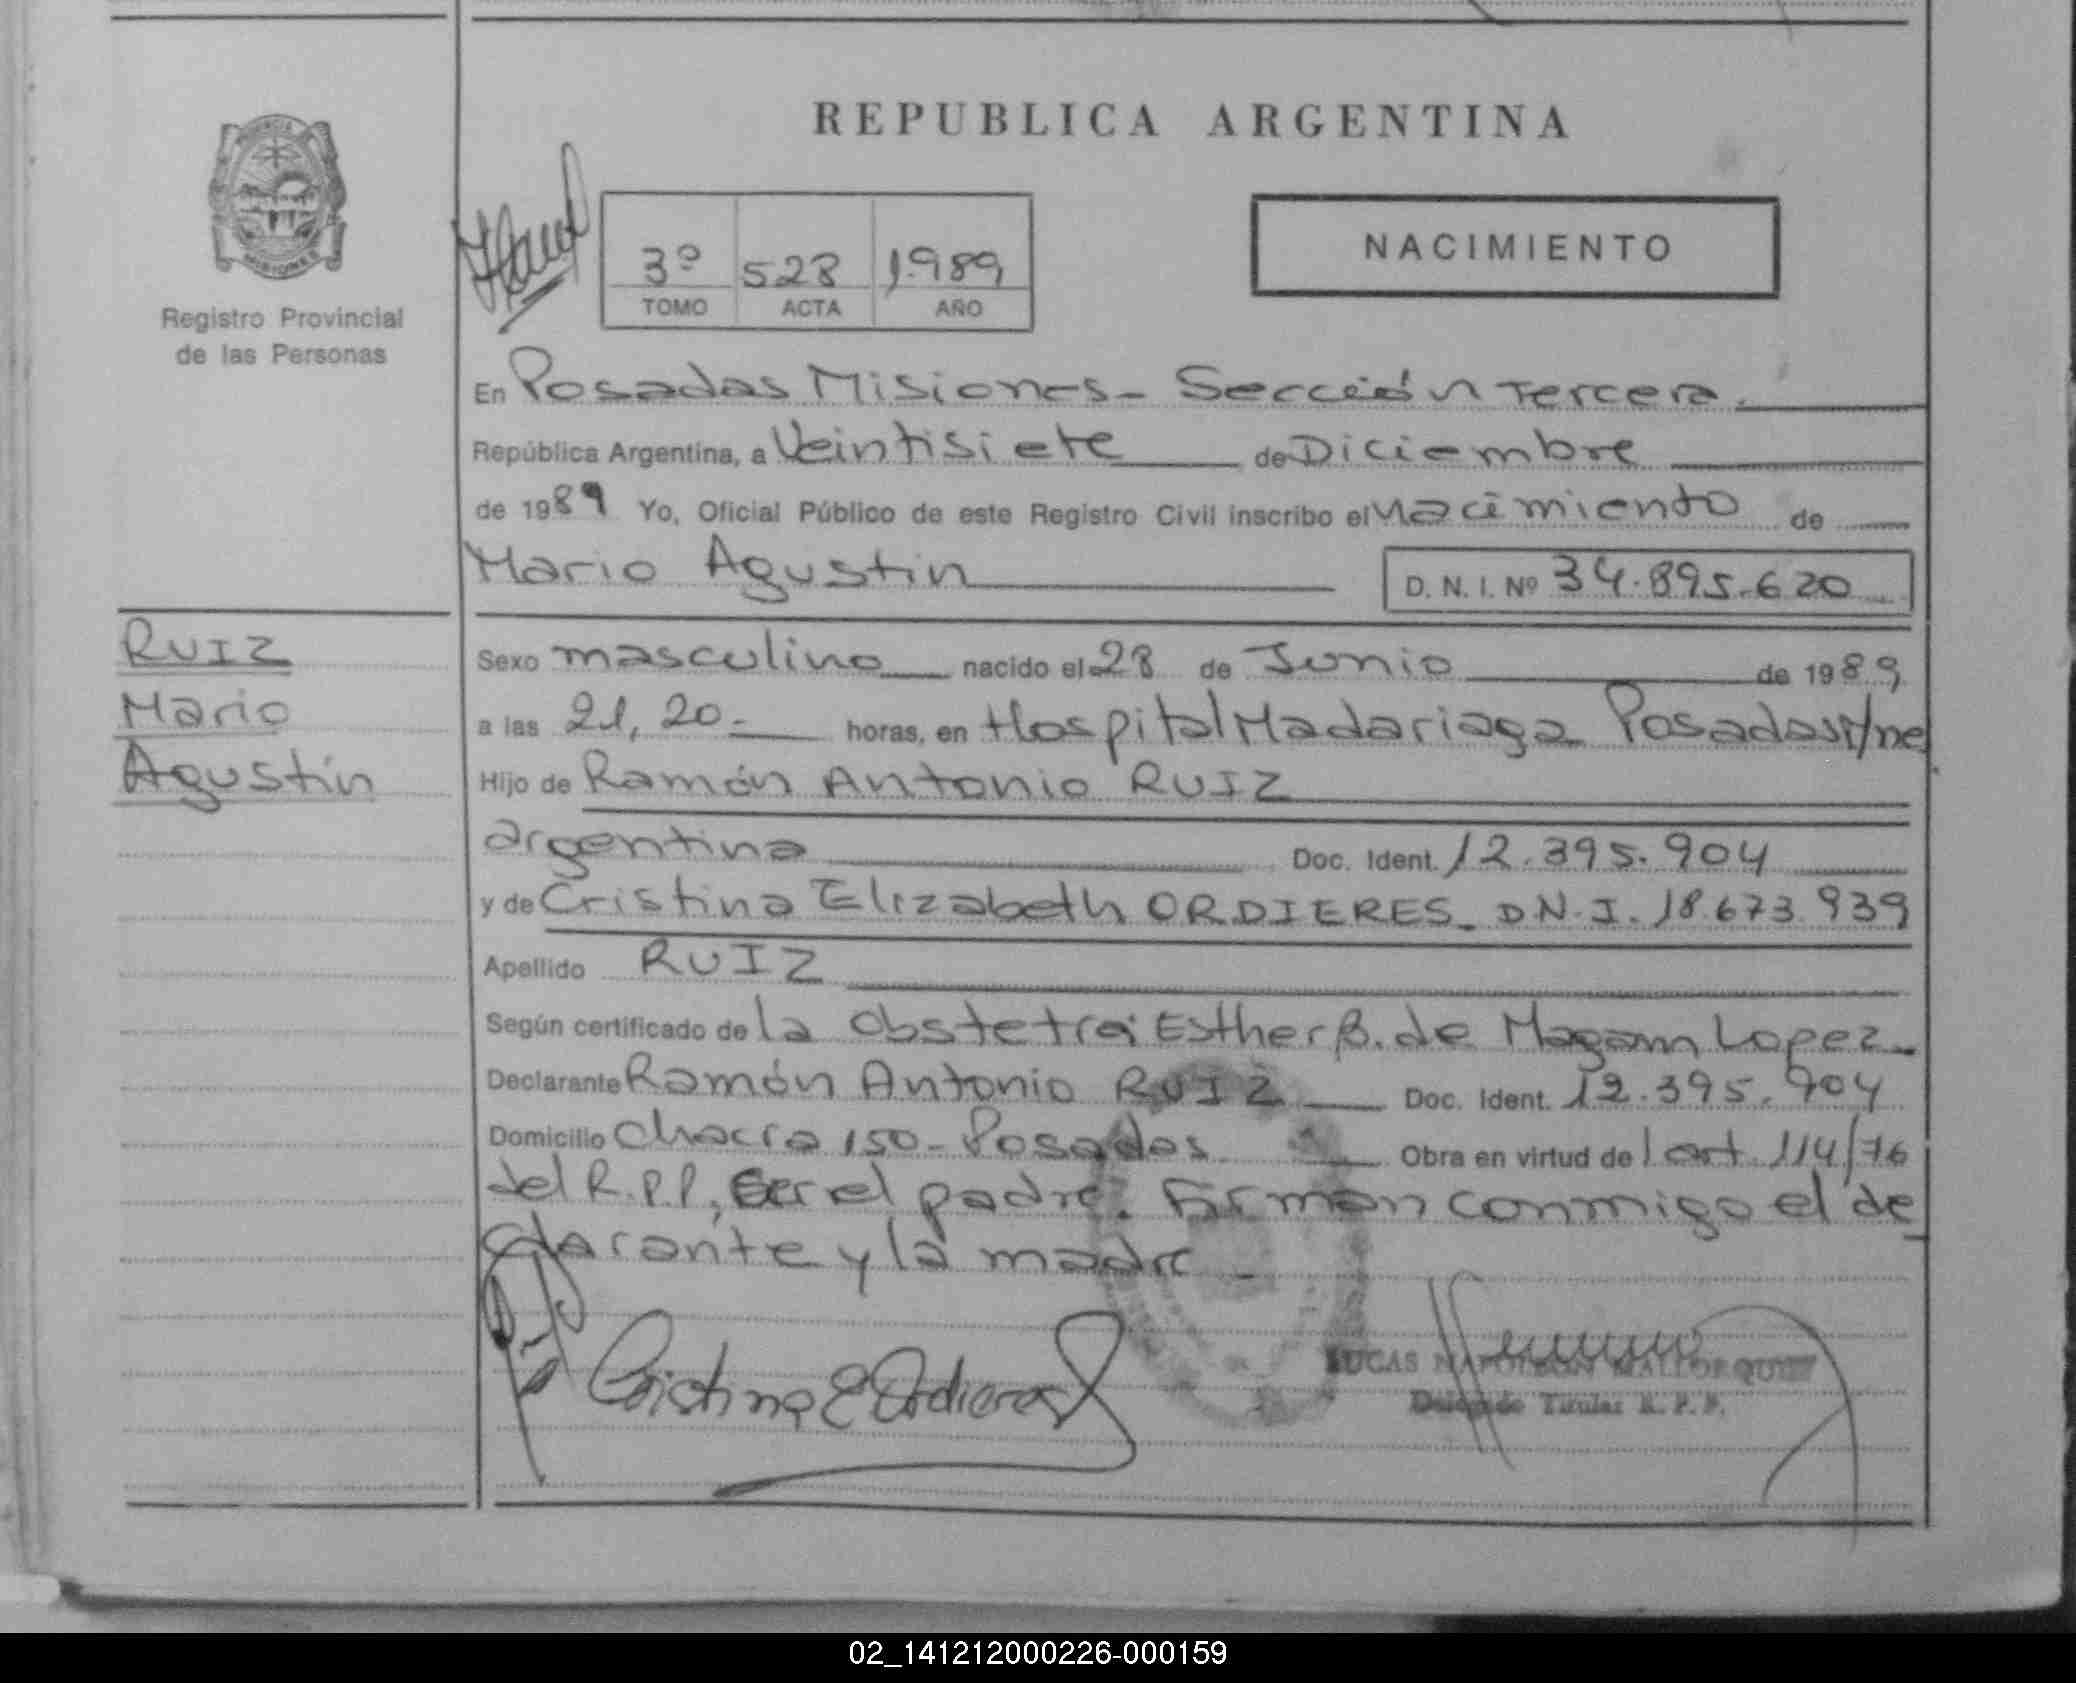 REPUBLICA ARGENTINA
PROVINCIA
MISIONES
Registro Provincial
de las Personas
3º 528 1.989
TOMO ACTA AÑO
NACIMIENTO
En Posadas Misiones - Sección Tercera.
República Argentina, a Veintisiete de Diciembre
de 1989 Yo, Oficial Público de este Registro Civil inscribo el Nacimiento de
Mario Agustin D. N. I. Nº 34.895.620
RUIZ
Mario
Agustín
Sexo masculino nacido el 28 de Junio de 1989
a las 21,20- horas, en Hospital Madariaga Posadas
Hijo de Ramón Antonio RUIZ
argentina Doc. Ident. 12.395.904
y de Cristina Elizabeth ORDIERES - D.N.I. 18.673.939
Apellido RUIZ
Según certificado de la Obstetra Esther B. de Lopez-
Declarante Ramón Antonio RUIZ Doc. Ident. 12.395.904
Domicilio Chacra 150 - Posadas Obra en virtud del art. 114/76
del R.P.P., Ser el padre. Firman conmigo el de
clarante y la madre -
Cristina E Ordieres
LUCAS NAPOLEON MALLORQUIN
Delegado Titular R. P. P.
02_141212000226-000159